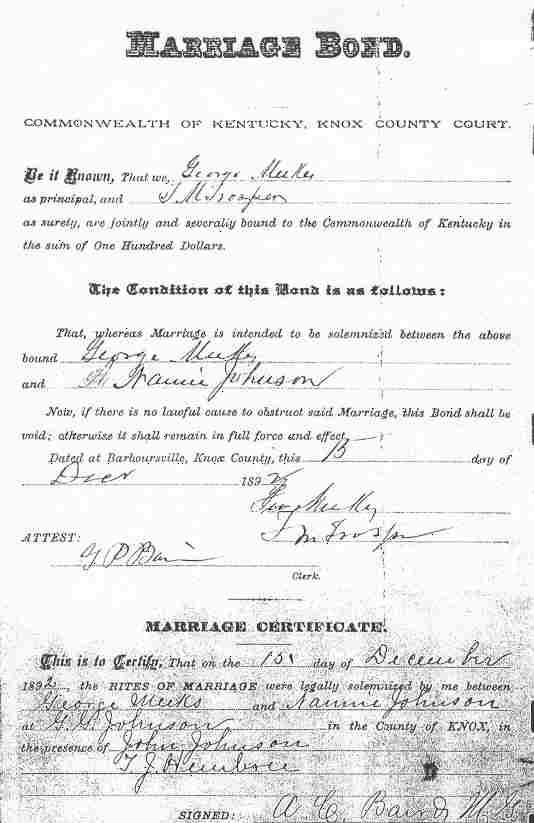 MARRIAGE BOND.
COMMONWEALTH OF KENTUCKY, KNOX COUNTY COURT.
Be it Known, That we, George Meeks
as principal, and T M Trosper
as surety, are jointly and severally bound to the Commonwealth of Kentucky in
the sum of One Hundred Dollars.
The Condition of this Bond is as follows:
That, whereas Marriage is intended to be solemnized between the above
bound George Meeks
and Nannie Johnson
Now, if there is no lawful cause to obstruct said Marriage, this Bond shall be
void; otherwise it shall remain in full force and effect.
Dated at Barboursville, Knox County, this day of
Decr 1892
Geo Meeks
T M Trosper
ATTEST:
Clerk.
MARRIAGE CERTIFICATE.
This is to Certify, That on the 15 day of December
1892, the RITES OF MARRIAGE were legally solemnized by me between
George Meeks and Nannie Johnson
at Johnson in the County of KNOX, in
the presence of John Johnson
T. J.
SIGNED: A C Baird M G